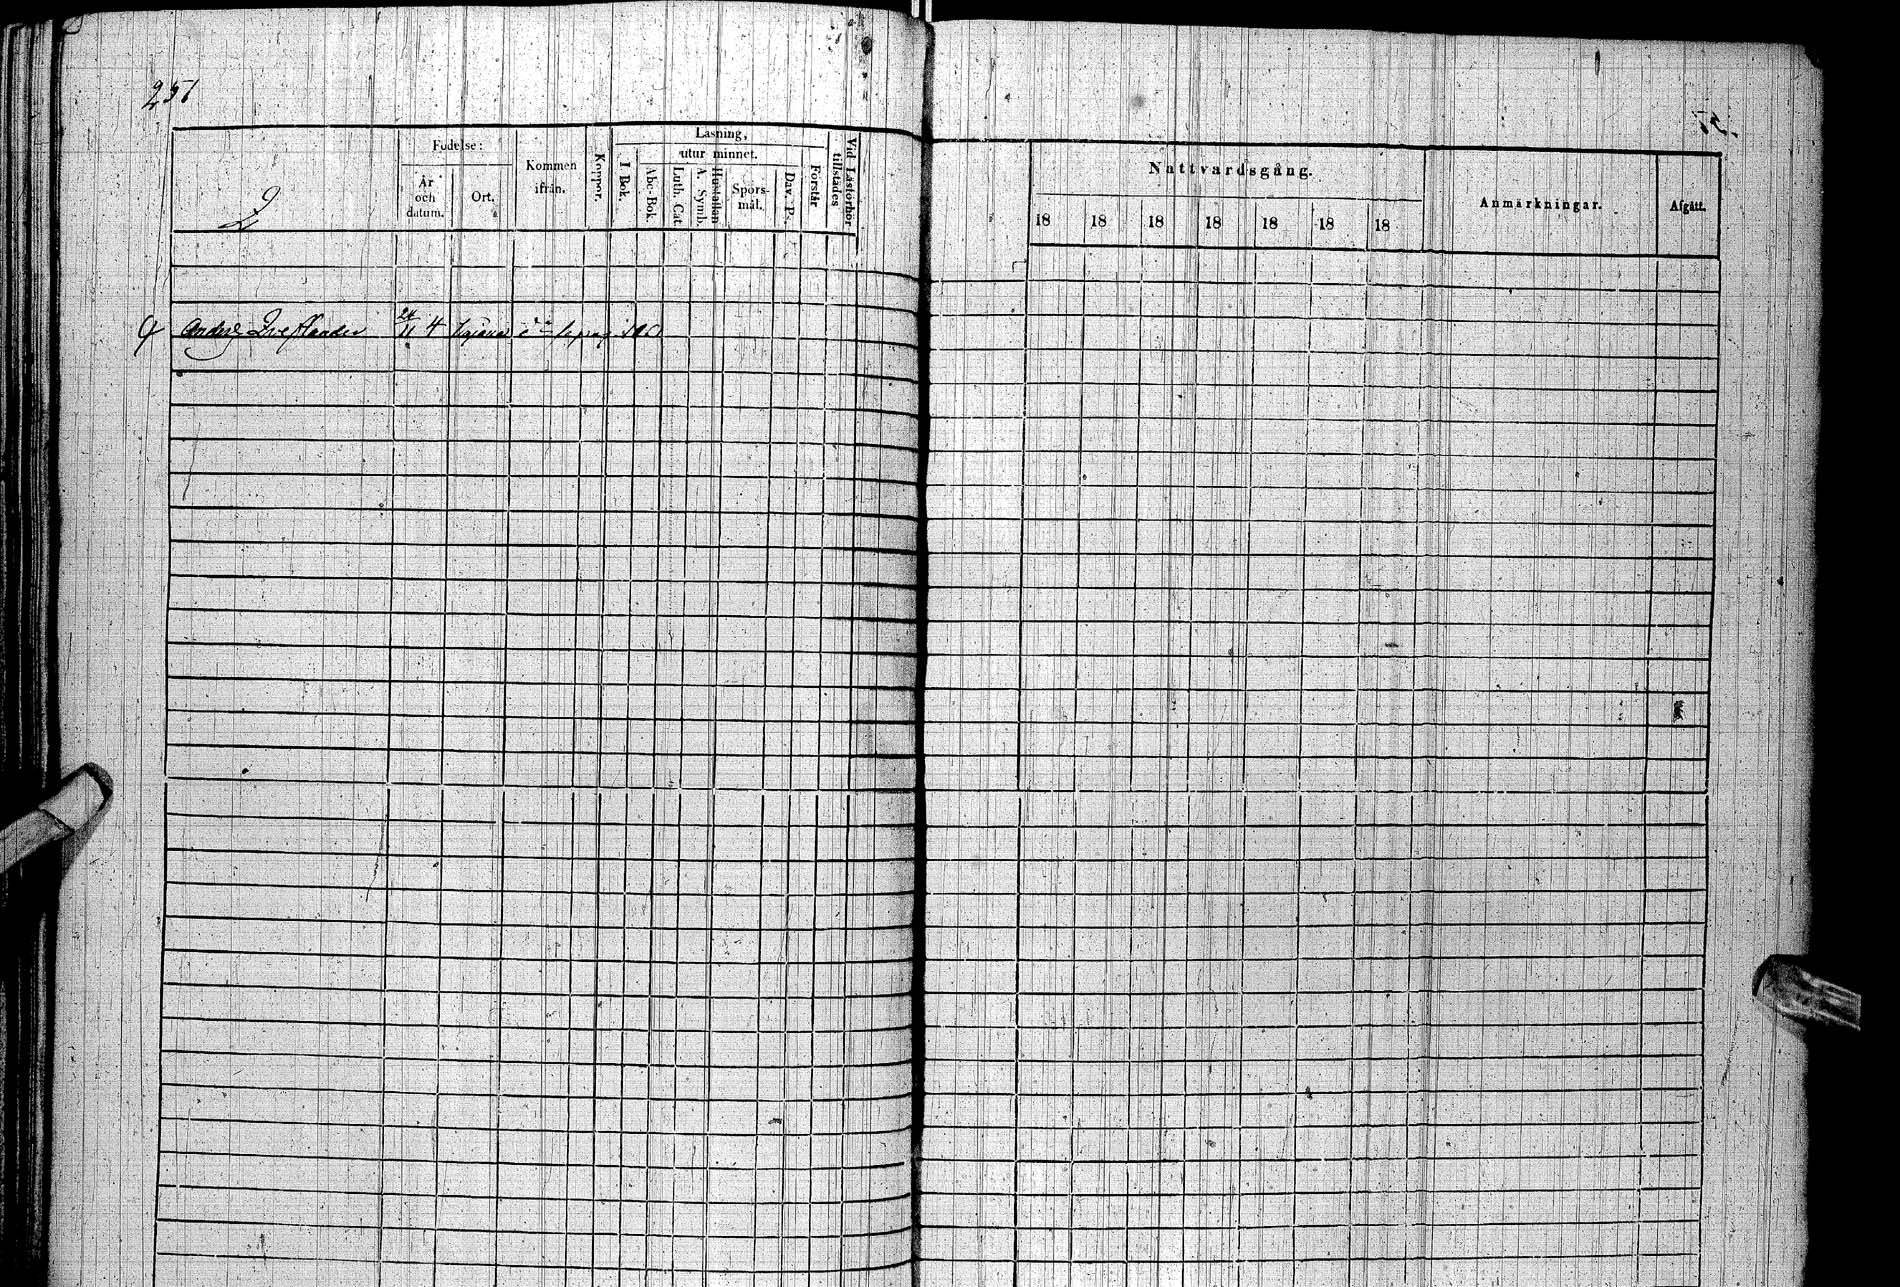 257
Födelse:
År
och
datum.
Ort.
Kommen
ifrån.
Koppor.
Läsning,
utur minnet.
I Bok.
Abc-Bok
Luth. Cat.
Hustaflan
A. Symb.
Spörs-
mål.
Dav. Ps.
Förstår
Vid Läsförhör
tillstädes
Nattvardsgång.
18 18 18 18 18 18 18
Anmärkningar.
Afgått.
24
11 4